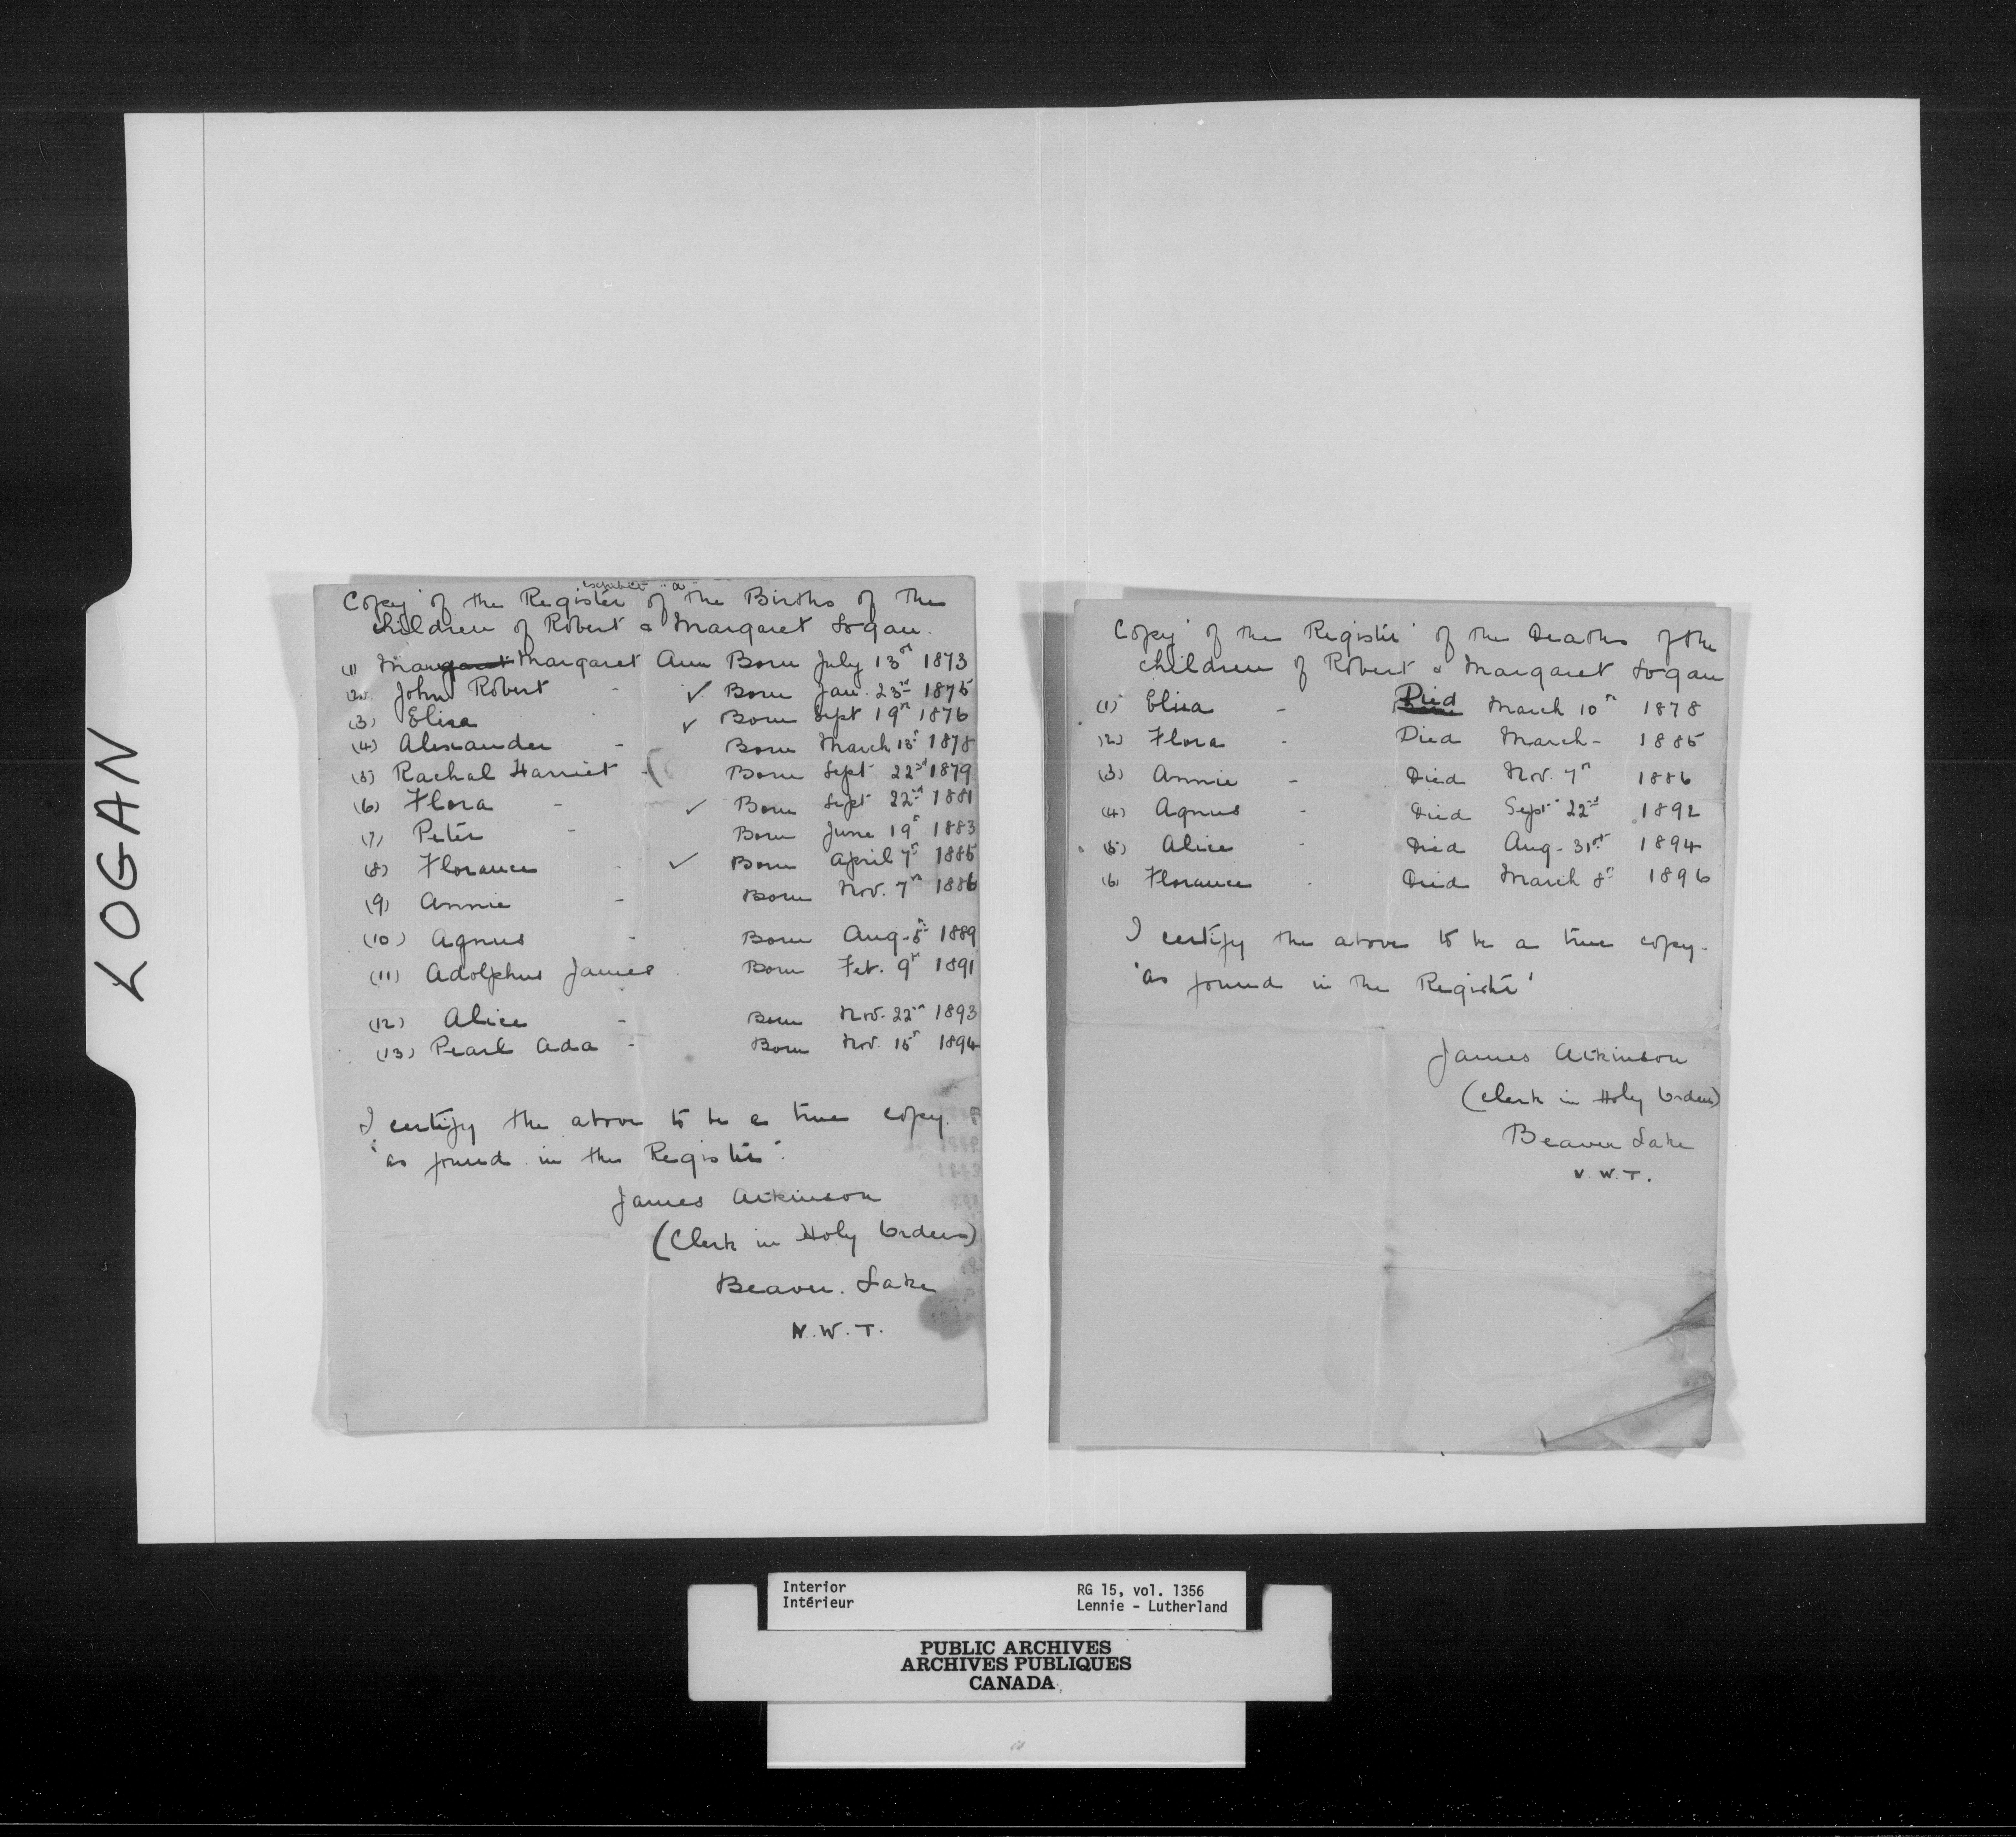 LOGAN
Exhibit "a"
Copy of the Register of the Births of the
children of Robert & Margaret Logan.
(1) Margaret Margaret Ann Born July 13th 1873
(2) John Robert - ✓ Born Jan. 23rd 1875
(3) Eliza - ✓ Born Sept 19th 1876
(4) Alexander - Born March 13th 1878
(5) Rachal Harriet - Born Sept 22nd 1879
(6) Flora - ✓ Born Sept 22nd 1881
(7) Peter - Born June 19th 1883
(8) Florance - ✓ Born April 7th 1885
(9) Annie - Born Nov. 7th 1886
(10) Agnus - Born Aug-5th 1889
(11) Adolphus James - Born Feb. 9th 1891
(12) Alice - Born Nov. 22nd 1893
(13) Pearl Ada - Born Nov. 15th 1894
I certify the above to be a true copy.
"as found in the Register".
James Atkinson
(Clerk in Holy Orders)
Beaver. Lake
N.W.T.
Copy of the Register of the Deaths of the
children of Robert & Margaret Logan
(1) Eliza - Died March 10th 1878
(2) Flora - Died March- 1885
(3) Annie - Died Nov. 7th 1886
(4) Agnus - Died Sept 22nd 1892
(5) Alice - Died Aug-31st 1894
(6) Florance - Died March 8th 1896
I certify the above to be a true copy-
'as found in the Register'
James Atkinson
(Clerk in Holy Orders)
Beaver Lake
N.W.T.
Interior
Intérieur
RG 15, vol. 1356
Lennie - Lutherland
PUBLIC ARCHIVES
ARCHIVES PUBLIQUES
CANADA